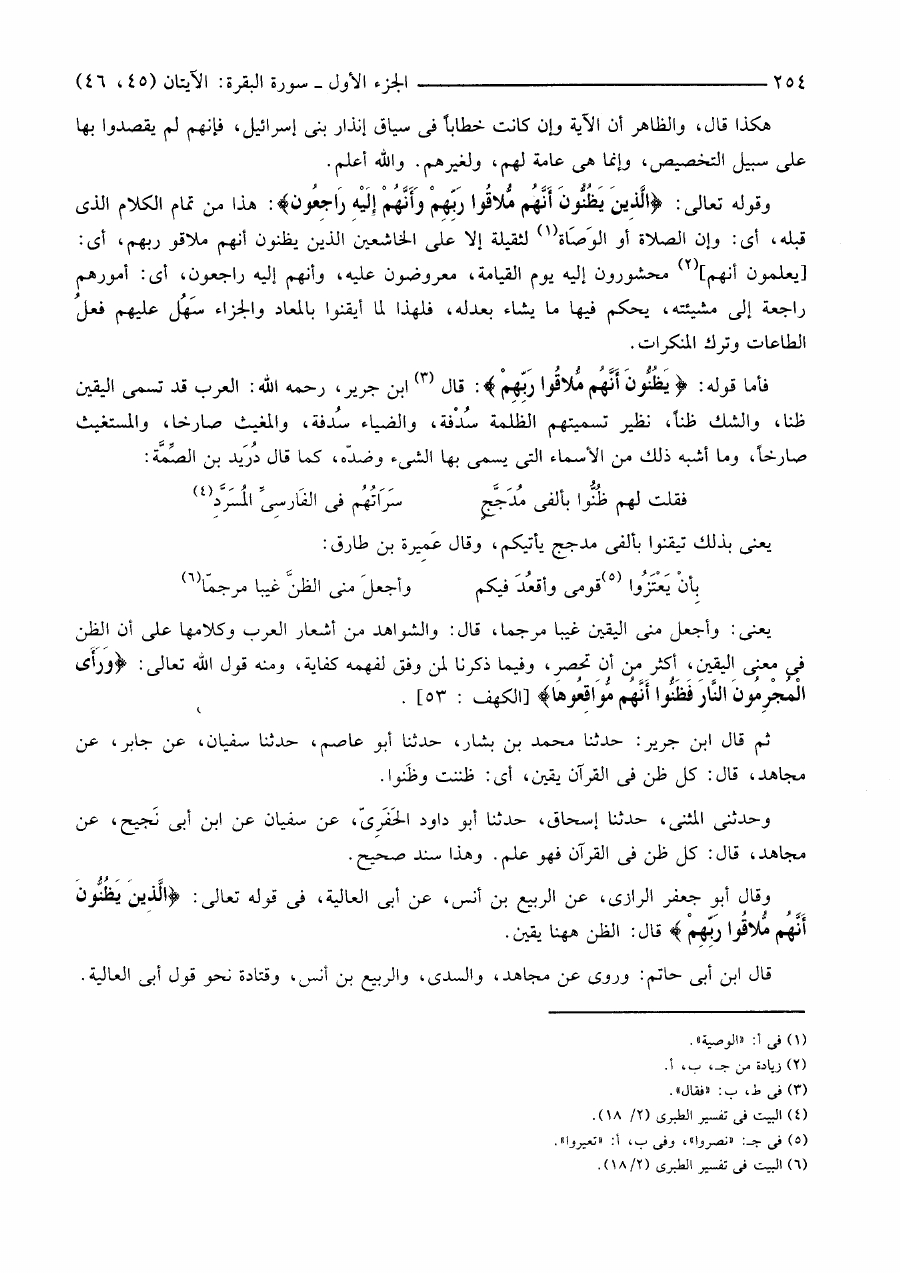 ٢٥٤ ــــــــــــــــ الجزء الأول ـ سورة البقرة: الآيتان (٤٥، ٤٦)
هكذا قال، والظاهر أن الآية وإن كانت خطاباً فى سياق إنذار بنى إسرائيل، فإنهم لم يقصدوا بها
على سبيل التخصيص، وإنما هى عامة لهم، ولغيرهم. والله أعلم.
وقوله تعالى: ﴿الَّذِينَ يَظُنُّونَ أَنَّهُم مُّلاقُوا رَبِّهِمْ وَأَنَّهُمْ إِلَيْهِ رَاجِعُون﴾: هذا من تمام الكلام الذى
قبله، أى: وإن الصلاة أو الوَصَاة(١) لثقيلة إلا على الخاشعين الذين يظنون أنهم ملاقو ربهم، أى:
[يعلمون أنهم](٢) محشورون إليه يوم القيامة، معروضون عليه، وأنهم إليه راجعون، أى: أمورهم
راجعة إلى مشيئته، يحكم فيها ما يشاء بعدله، فلهذا لما أيقنوا بالمعاد والجزاء سَهُل عليهم فعلُ
الطاعات وترك المنكرات.
فأما قوله: ﴿يَظُنُّونَ أَنَّهُم مُلاقُوا رَبِّهِمْ﴾: قال (٣) ابن جرير، رحمه الله: العرب قد تسمى اليقين
ظنا، والشك ظناً، نظير تسميتهم الظلمة سُدْفة، والضياء سُدفة، والمغيث صارخا، والمستغيث
صارخاً، وما أشبه ذلك من الأسماء التى يسمى بها الشىء وضدّه، كما قال دُرَيد بن الصِّمَّة:
فقلت لهم ظُنُّوا بألفى مُدَجَّجٍ سَرَاتُهُم فى الفَارسِىِّ المُسَرَّدِ(٤)
يعنى بذلك تيقنوا بألفى مدجج يأتيكم، وقال عَمِيرة بن طارق:
بِأنْ يَعْتَزُوا (٥)قومى وأقعُدَ فيكم وأجعلَ منى الظنَّ غيبا مرجمّا(٦)
يعنى: وأجعل منى اليقين غيبا مرجما، قال: والشواهد من أشعار العرب وكلامها على أن الظن
فى معنى اليقين، أكثر من أن تحصر، وفيما ذكرنا لمن وفق لفهمه كفاية، ومنه قول الله تعالى: ﴿وَرَأَى
الْمُجْرِمُونَ النَّارَ فَظَنُّوا أَنَّهُم مُّوَاقِعُوهَا﴾ [الكهف : ٥٣] .
ثم قال ابن جرير: حدثنا محمد بن بشار، حدثنا أبو عاصم، حدثنا سفيان، عن جابر، عن
مجاهد، قال: كل ظن فى القرآن يقين، أى: ظننت وظَنوا.
وحدثنى المثنى، حدثنا إسحاق، حدثنا أبو داود الحَفَرِىّ، عن سفيان عن ابن أبى نَجيح، عن
مجاهد، قال: كل ظن فى القرآن فهو علم. وهذا سند صحيح.
وقال أبو جعفر الرازى، عن الربيع بن أنس، عن أبى العالية، فى قوله تعالى: ﴿الَّذِينَ يَظُنُّونَ
أَنَّهُم مُّلاقُوا رَبِّهِمْ﴾ قال: الظن ههنا يقين.
قال ابن أبى حاتم: وروى عن مجاهد، والسدى، والربيع بن أنس، وقتادة نحو قول أبى العالية.
(١) فى أ: «الوصية».
(٢) زيادة من جـ، ب، أ.
(٣) فى ط، ب: «فقال».
(٤) البيت فى تفسير الطبرى (٢/ ١٨).
(٥) فى جـ: «نصروا»، وفى ب، أ: «تعيروا».
(٦) البيت فى تفسير الطبرى (١٨/٢).